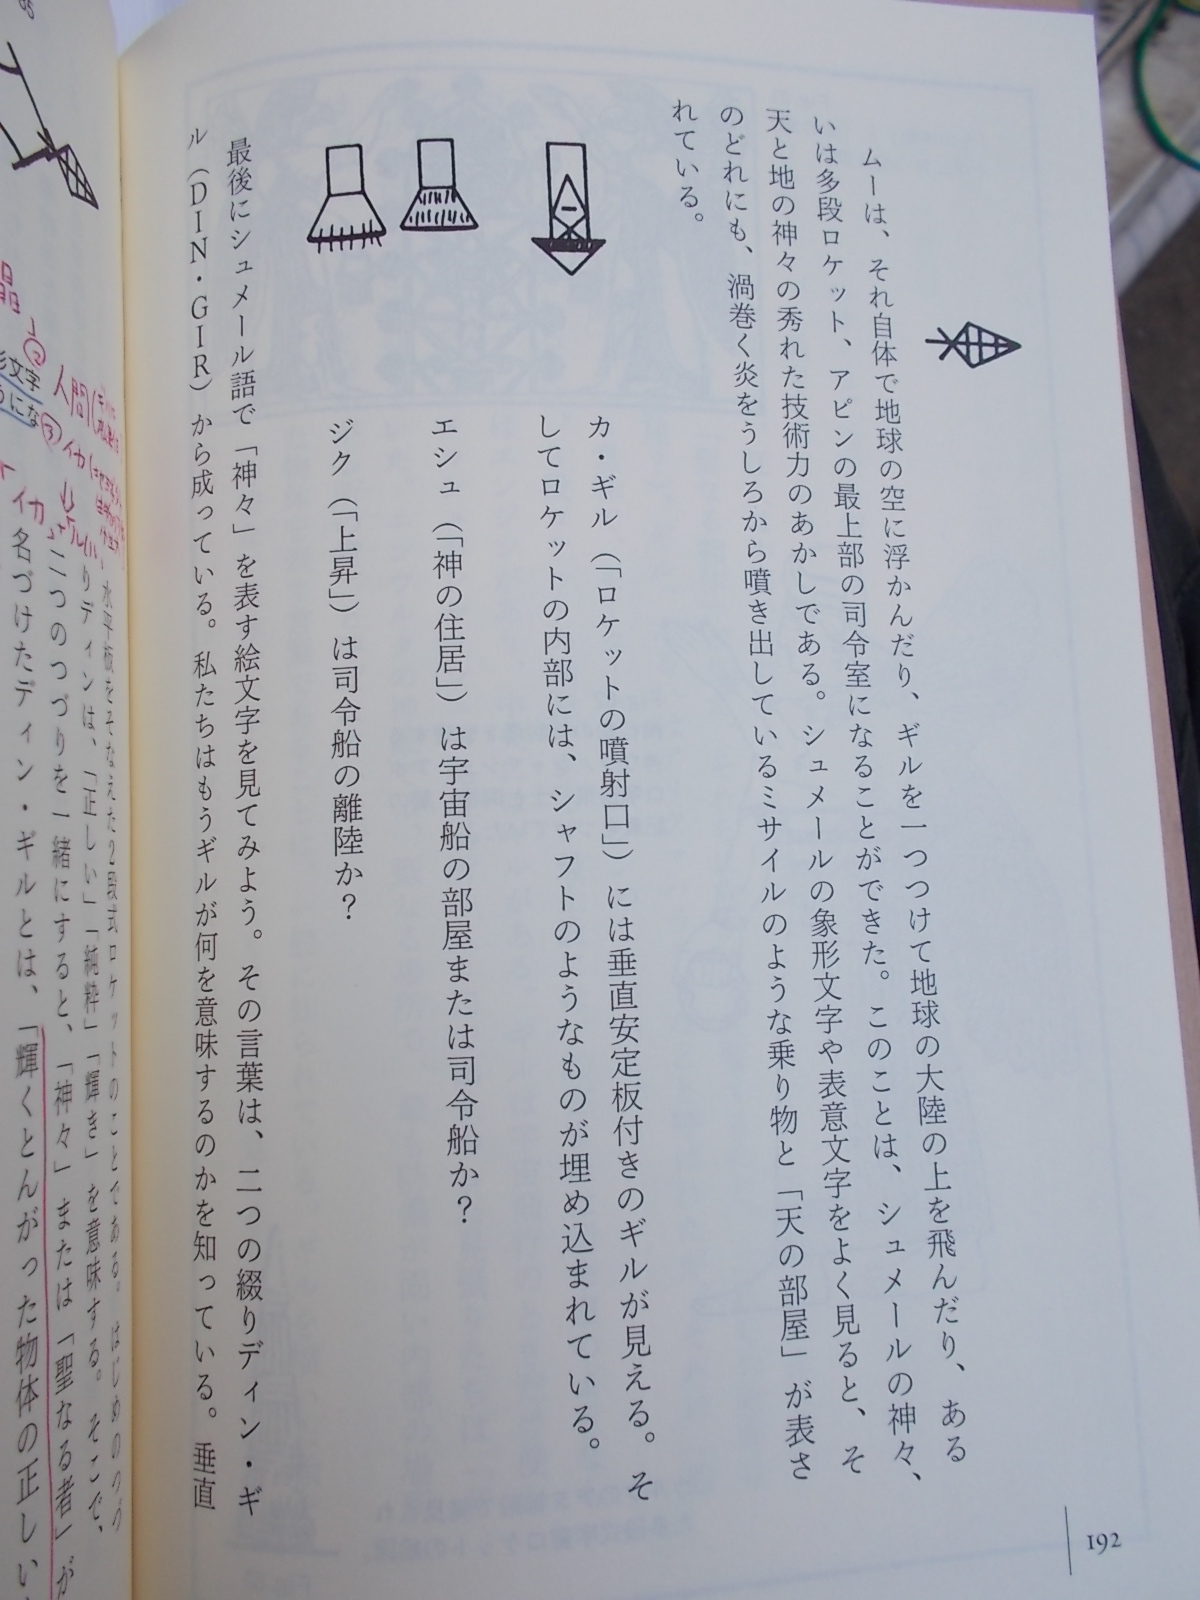 ムーは、それ自体で地球の空に浮かんだり、ギルを一つつけて地球の大陸の上を飛んだり、ある
いは多段ロケット、アピンの最上部の司令室になることができた。このことは、シュメールの神々、
天と地の神々の秀れた技術力のあかしである。シュメールの象形文字や表意文字をよく見ると、そ
のどれにも、渦巻く炎をうしろから噴き出しているミサイルのような乗り物と「天の部屋」が表さ
れている。
カ・ギル（「ロケットの噴射口」）には垂直安定板付きのギルが見える。そ
してロケットの内部には、シャフトのようなものが埋め込まれている。
エシュ（「神の住居」）は宇宙船の部屋または司令船か？
ジク（「上昇」）は司令船の離陸か？
最後にシュメール語で「神々」を表す絵文字を見てみよう。その言葉は、二つの綴りディン・ギ
ル（DIN・GIR）から成っている。私たちはもうギルが何を意味するのかを知っている。垂直
192
水平板をそなえた2段式ロケットのことである。はじめのつづ
りディンは、「正しい」「純粋」「輝き」を意味する。そこで、
二つのつづりを一緒にすると、「神々」または「聖なる者」が
名づけたディン・ギルとは、「輝くとんがった物体の正しい
晶
人間
イカ
イカ
形文字
うにな